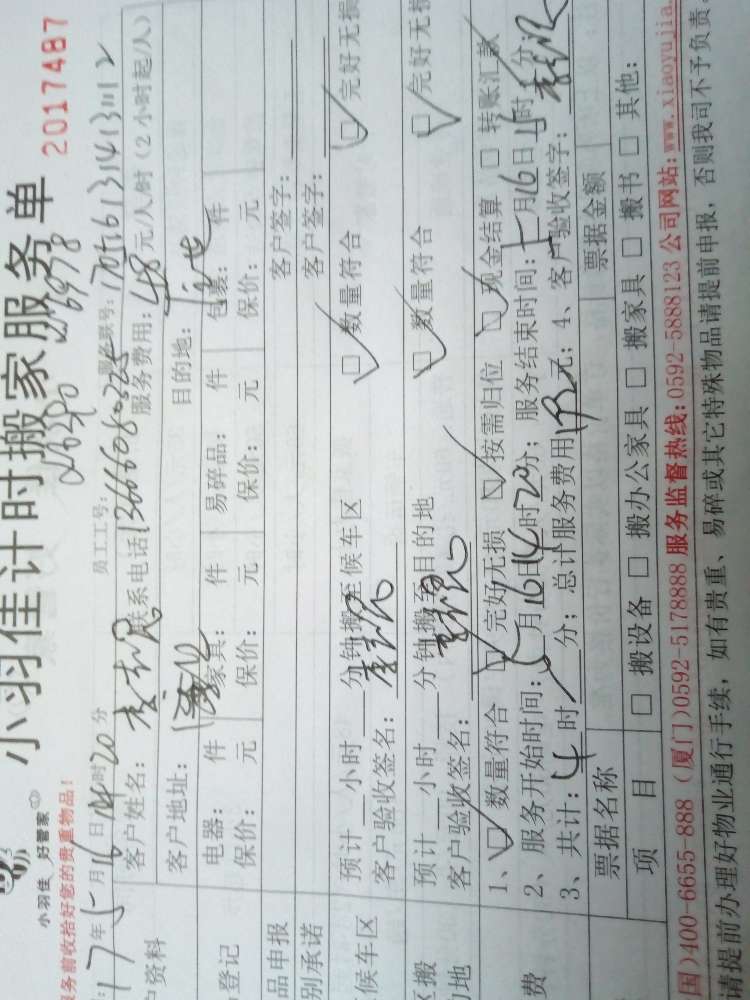 小羽佳计时搬家服务单
2017487
小羽佳 好管家
服务前收拾好您的贵重物品!
17年5月16日14时20分 员工工号:
客户姓名: 联系电话13666080325 服务费用: 48元/人/时(2小时起/人)
客户地址: 目的地:
电器: 件 家具: 件 易碎品: 件 包裹: 件
保价: 元 保价: 元 保价: 元 保价: 元
品申报 客户签字:
别承诺 客户签字:
预计__小时__分钟搬至候车区 □数量符合 □完好无损
候车区 客户验收签名:
预计__小时__分钟搬至目的地 □数量符合 □完好无损
客户验收签名:
1、□数量符合 □完好无损 □按需归位 □现金结算 □转账汇款
2、服务开始时间: 5月16日14时20分; 服务结束时间: 月16日 时 分;
3、共计: 4时 分; 总计服务费用192元; 4、客户验收签字:
票据名称 票据金额
项目 □搬设备 □搬办公家具 □搬家具 □搬书 □其他:
国)400-6655-888 (厦门)0592-5178888 服务监督热线: 0592-5888123 公司网站: www.xiaoyujia.
请提前办理好物业通行手续, 如有贵重、易碎或其它特殊物品请提前申报, 否则我司不予负责。